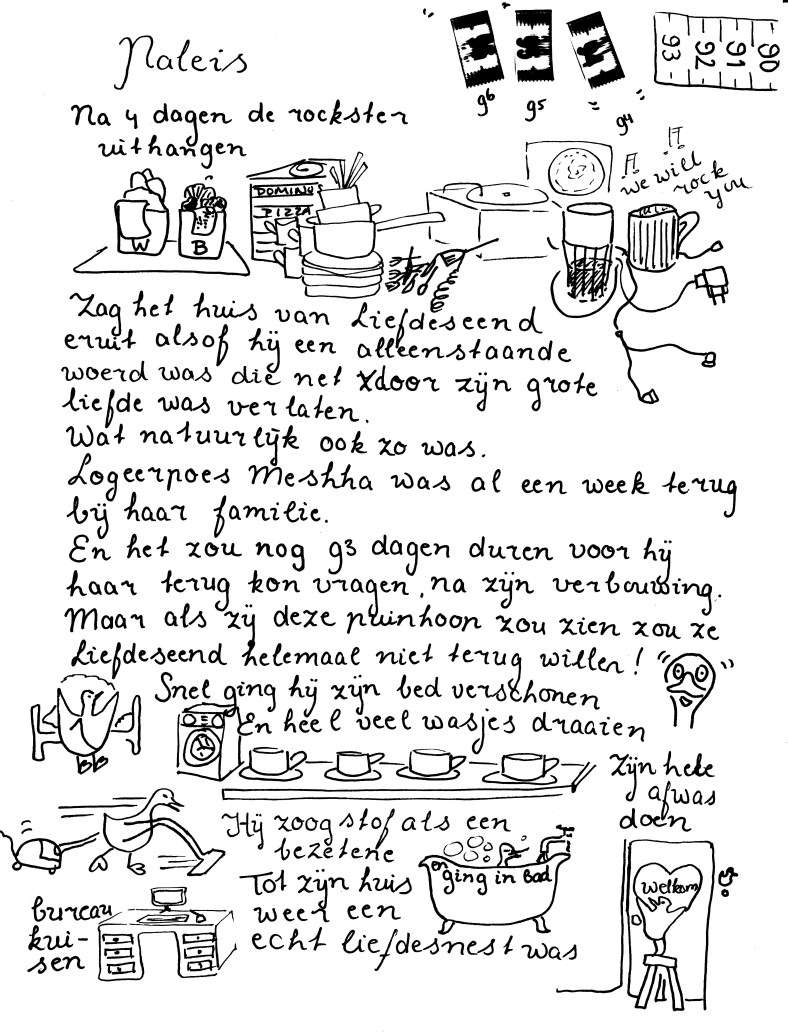 Paleis
96
95
94
93
92
91
90
Na 4 dagen de rockster
uithangen
we will
rock
you
DOMINO'S
PIZZA
W
B
Zag het huis van Liefdeseend
eruit alsof hij een alleenstaande
woerd was die net door zijn grote
liefde was verlaten.
Wat natuurlijk ook zo was.
Logeerpoes Meshha was al een week terug
bij haar familie.
En het zou nog 93 dagen duren voor hij
haar terug kon vragen, na zijn verbouwing.
Maar als zij deze puinhoon zou zien zou ze
Liefdeseend helemaal niet terug willen!
Snel ging hij zijn bed verschonen
En heel veel wasjes draaien
Zijn hele
afwas
doen
Hij zoog stof als een
bezetene
en
ging in bad
Tot zijn huis
weer een
echt liefdesnest was
bureau
kui-
sen
Welkom